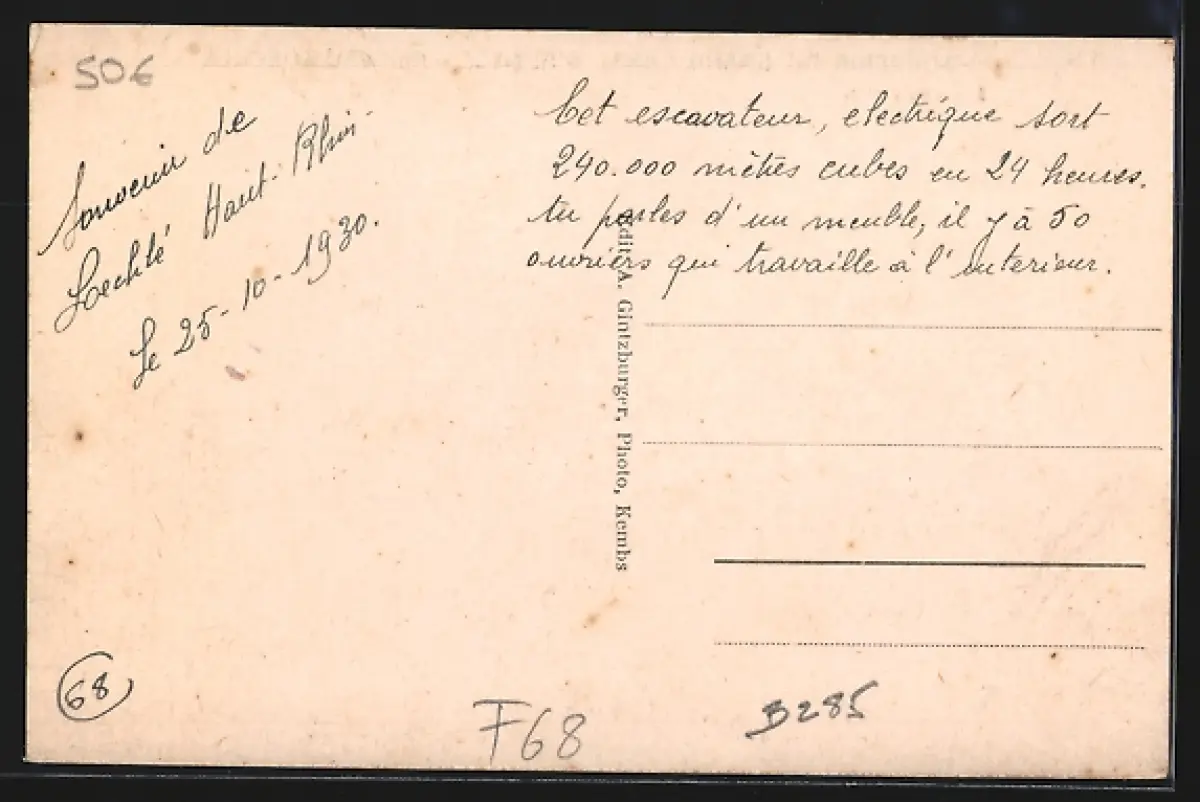 50€
Souvenir de
Loechlé Haut-Rhin-
Le 25-10-1930.
Cet escavateur, electrique sort
240.000 mètres cubes en 24 heures.
tu parles d'un meuble, il y à 50
ouvriers qui travaille à l'interieur.
Edit. A. Gintzburger, Photo, Kembs
68
F68
B285